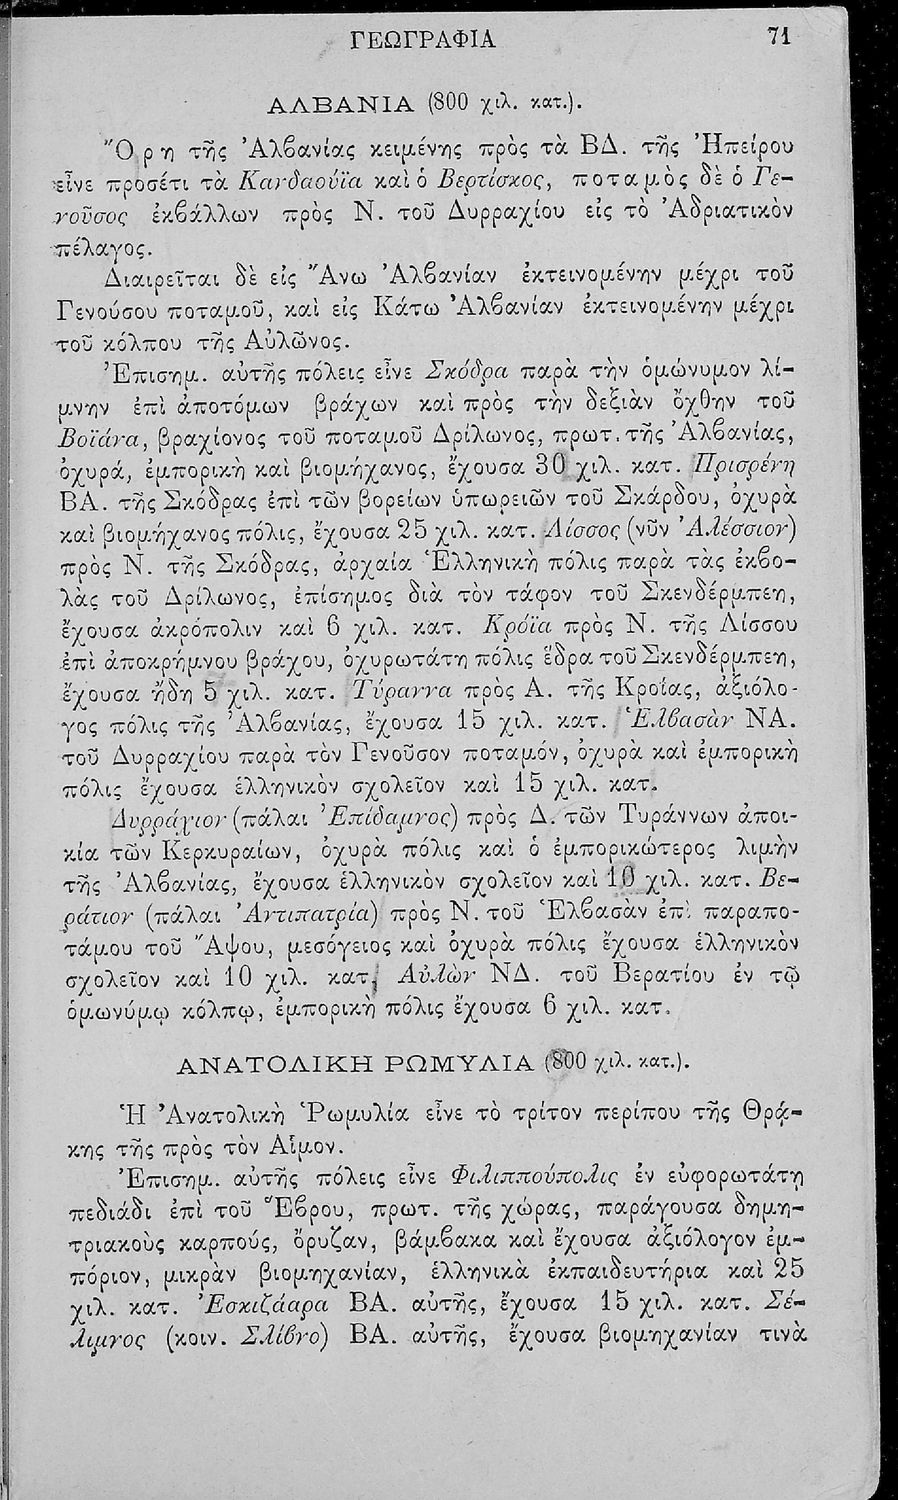 ΓΕΩΓΡΑΦΙΑ 71
ΑΛΒΑΝΙΑ (800 χιλ. κατ.).
Ὄρη τῆς Ἀλβανίας κειμένης πρὸς τὰ ΒΔ. τῆς Ἠπείρου
εἶνε προσέτι τὰ Κανδαούϊα καὶ ὁ Βερτίσκος, ποταμὸς δὲ ὁ Γε-
νοῦσος ἐκβάλλων πρὸς Ν. τοῦ Δυρραχίου εἰς τὸ Ἀδριατικὸν
πέλαγος.
Διαιρεῖται δὲ εἰς Ἄνω Ἀλβανίαν ἐκτεινομένην μέχρι τοῦ
Γενούσου ποταμοῦ, καὶ εἰς Κάτω Ἀλβανίαν ἐκτεινομένην μέχρι
τοῦ κόλπου τῆς Αὐλῶνος.
Ἐπισημ. αὐτῆς πόλεις εἶνε Σκόδρα παρὰ τὴν ὁμώνυμον λί-
μνην ἐπὶ ἀποτόμων βράχων καὶ πρὸς τὴν δεξιὰν ὄχθην τοῦ
Βοϊάνα, βραχίονος τοῦ ποταμοῦ Δρίλωνος, πρωτ. τῆς Ἀλβανίας,
ὀχυρά, ἐμπορικὴ καὶ βιομήχανος, ἔχουσα 30 χιλ. κατ. Πρισρένη
ΒΑ. τῆς Σκόδρας ἐπὶ τῶν βορείων ὑπωρειῶν τοῦ Σκάρδου, ὀχυρὰ
καὶ βιομήχανος πόλις, ἔχουσα 25 χιλ. κατ. Λίσσος (νῦν Ἀλέσσιον)
πρὸς Ν. τῆς Σκόδρας, ἀρχαία Ἑλληνικὴ πόλις παρὰ τὰς ἐκβο-
λὰς τοῦ Δρίλωνος, ἐπίσημος διὰ τὸν τάφον τοῦ Σκενδέρμπεη,
ἔχουσα ἀκρόπολιν καὶ 6 χιλ. κατ. Κρόϊα πρὸς Ν. τῆς Λίσσου
ἐπὶ ἀποκρήμνου βράχου, ὀχυρωτάτη πόλις ἕδρα τοῦ Σκενδέρμπεη,
ἔχουσα ἤδη 5 χιλ. κατ. Τύραννα πρὸς Α. τῆς Κροΐας, ἀξιόλο-
γος πόλις τῆς Ἀλβανίας, ἔχουσα 15 χιλ. κατ. Ἑλβασὰν ΝΑ.
τοῦ Δυρραχίου παρὰ τὸν Γενοῦσον ποταμόν, ὀχυρὰ καὶ ἐμπορικὴ
πόλις ἔχουσα ἑλληνικὸν σχολεῖον καὶ 15 χιλ. κατ.
Δυρράχιον (πάλαι Ἐπίδαμνος) πρὸς Δ. τῶν Τυράννων ἀποι-
κία τῶν Κερκυραίων, ὀχυρὰ πόλις καὶ ὁ ἐμπορικώτερος λιμὴν
τῆς Ἀλβανίας, ἔχουσα ἑλληνικὸν σχολεῖον καὶ 10 χιλ. κατ. Βε-
ράτιον (πάλαι Ἀντιπατρία) πρὸς Ν. τοῦ Ἑλβασὰν ἐπὶ παραπο-
τάμου τοῦ Ἄψου, μεσόγειος καὶ ὀχυρὰ πόλις ἔχουσα ἑλληνικὸν
σχολεῖον καὶ 10 χιλ. κατ. Αὐλὼν ΝΔ. τοῦ Βερατίου ἐν τῷ
ὁμωνύμῳ κόλπῳ, ἐμπορικὴ πόλις ἔχουσα 6 χιλ. κατ.
ΑΝΑΤΟΛΙΚΗ ΡΩΜΥΛΙΑ (800 χιλ. κατ.).
Ἡ Ἀνατολικὴ Ῥωμυλία εἶνε τὸ τρίτον περίπου τῆς Θρᾴ-
κης τῆς πρὸς τὸν Αἷμον.
Ἐπισημ. αὐτῆς πόλεις εἶνε Φιλιππούπολις ἐν εὐφορωτάτῃ
πεδιάδι ἐπὶ τοῦ Ἕβρου, πρωτ. τῆς χώρας, παράγουσα δημη-
τριακοὺς καρπούς, ὄρυζαν, βάμβακα καὶ ἔχουσα ἀξιόλογον ἐμ-
πόριον, μικρὰν βιομηχανίαν, ἑλληνικὰ ἐκπαιδευτήρια καὶ 25
χιλ. κατ. Ἐσκιζάαρα ΒΑ. αὐτῆς, ἔχουσα 15 χιλ. κατ. Σέ-
λιμνος (κοιν. Σλίβνο) ΒΑ. αὐτῆς, ἔχουσα βιομηχανίαν τινὰ